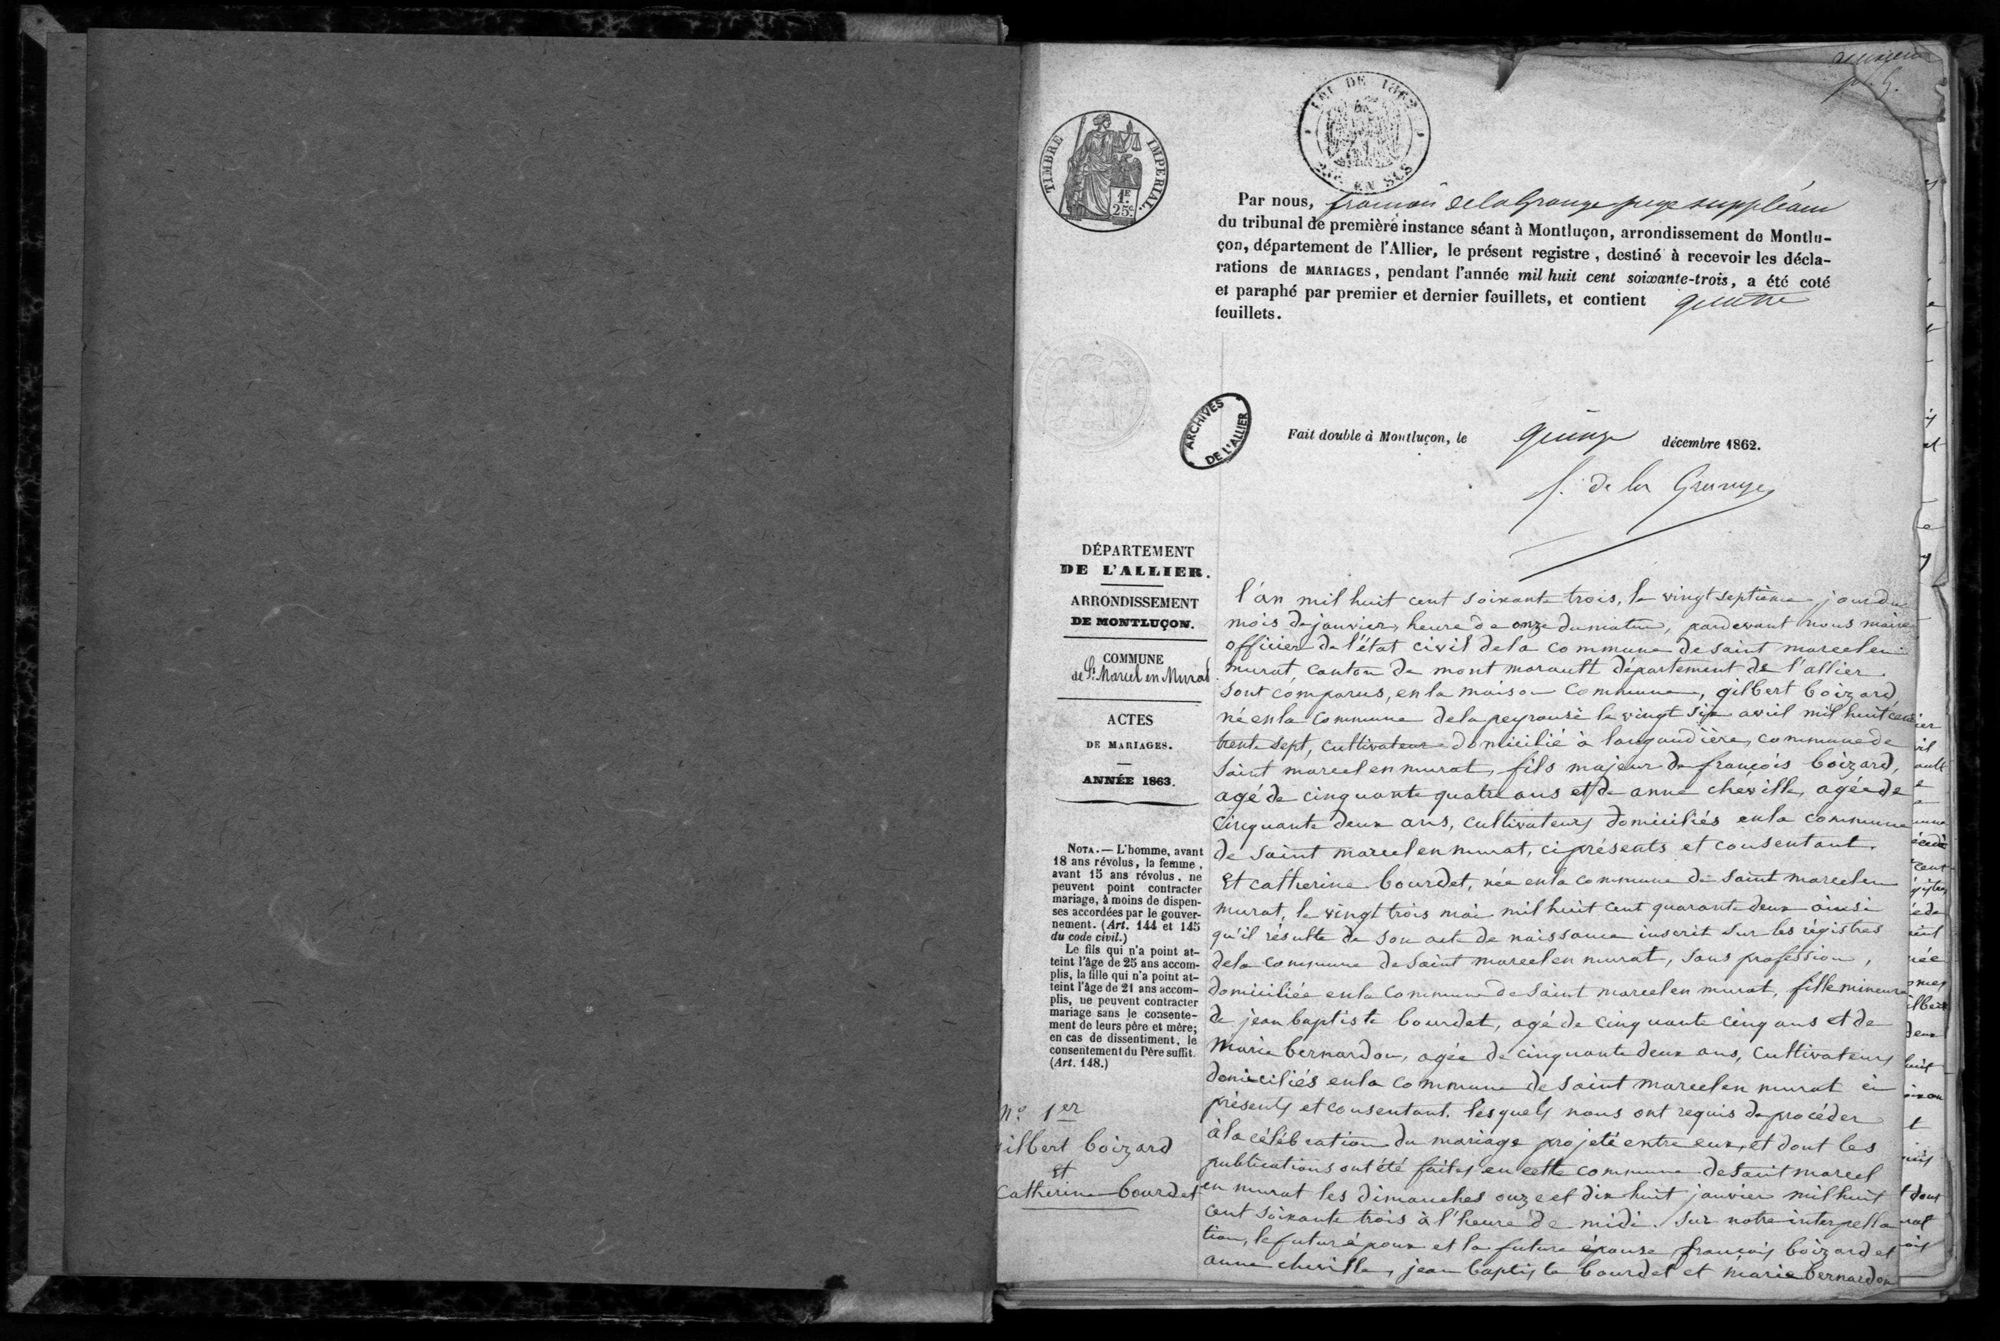 TIMBRE IMPÉRIAL.
1F.
25c.
LOI DE 1862
EN SUS
Par nous, de la Grange juge suppléant
du tribunal de première instance séant à Montluçon, arrondissement de Montlu-
çon, département de l'Allier, le présent registre, destiné à recevoir les décla-
rations de MARIAGES, pendant l'année mil huit cent soixante-trois, a été coté
et paraphé par premier et dernier feuillets, et contient quatre
feuillets.
ARCHIVES
DE L'ALLIER
Fait double à Montluçon, le quinze décembre 1862.
f. de la Grange
DÉPARTEMENT
DE L'ALLIER.
ARRONDISSEMENT
DE MONTLUÇON.
COMMUNE
de St Marcel en Murat
ACTES
DE MARIAGES.
ANNÉE 1863.
NOTA. — L'homme, avant
18 ans révolus, la femme,
avant 15 ans révolus, ne
peuvent point contracter
mariage, à moins de dispen-
ses accordées par le gouver-
nement. (Art. 144 et 145
du code civil.)
Le fils qui n'a point at-
teint l'âge de 25 ans accom-
plis, la fille qui n'a point at-
teint l'âge de 21 ans accom-
plis, ne peuvent contracter
mariage sans le consente-
ment de leurs père et mère;
en cas de dissentiment, le
consentement du Père suffit.
(Art. 148.)
N° 1er
ilbert boizard
et
Catherine bourdet
l'an mil huit cent soixante trois, le vingt septième jour du
mois de janvier, heure de onze du matin, pardevant nous maire
officier de l'état civil de la commune de saint marcel en
murat, canton de mont marault département de l'allier
sont comparus, en la maison commune, gilbert boizard
né en la commune de lapeyrouse le vingt six avril mil huit cent
trente sept, cultivateur domicilié à langaudière, commune de
saint marcel en murat, fils majeur de françois boizard,
agé de cinquante quatre ans et de anne cheville, agée de
cinquante deux ans, cultivateurs domiciliés en la commune
de saint marcel en murat, ci présents et consentant.
Et catherine bourdet, née en la commune de saint marcel en
murat, le vingt trois mai mil huit cent quarante deux ainsi
qu'il résulte de son acte de naissance inscrit sur les régistres
de la commune de saint marcel en murat, sans profession,
domiciliée en la commune de saint marcel en murat, fille mineure
de jean baptiste bourdet, agé de cinquante cinq ans et de
marie bernardon, agée de cinquante deux ans, cultivateurs
domiciliés en la commune de saint marcel en murat ci
présents et consentant. lesquels nous ont requis de procéder
à la célébration du mariage projeté entre eux, et dont les
publications ont été faites en cette commune de saint marcel
en murat les dimanches onze et dix huit janvier mil huit
cent soixante trois à l'heure de midi. sur notre interpella
tion, le futur époux et la future épouse, françois boizard et
anne cheville, jean baptiste bourdet et marie bernardon